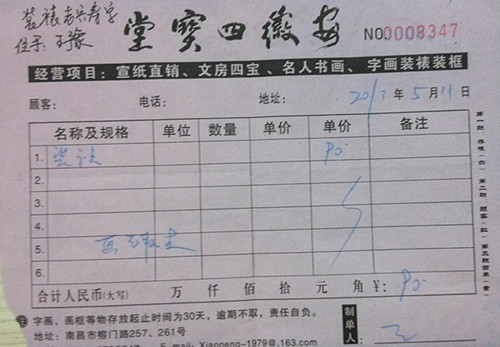 堂寶四徽安
NO 0008347
经营项目：宣纸直销、文房四宝、名人书画、字画装裱装框
顾客： 电话： 地址： 2013年5月11日
名称及规格 单位 数量 单价 单价 备注
1. 装裱 90
2.
3.
4.
5.
6.
合计人民币(大写) 万 仟 佰 拾 元 角 ¥: 90
字画、画框等物存放起止时间为30天，逾期不取，责任自负。
地址：南昌市榕门路257、261号
E-mail：Xiaopeng-1979@.163.com
制单人：
第一联：存根(白) 第二联：顾客(红) 第三联